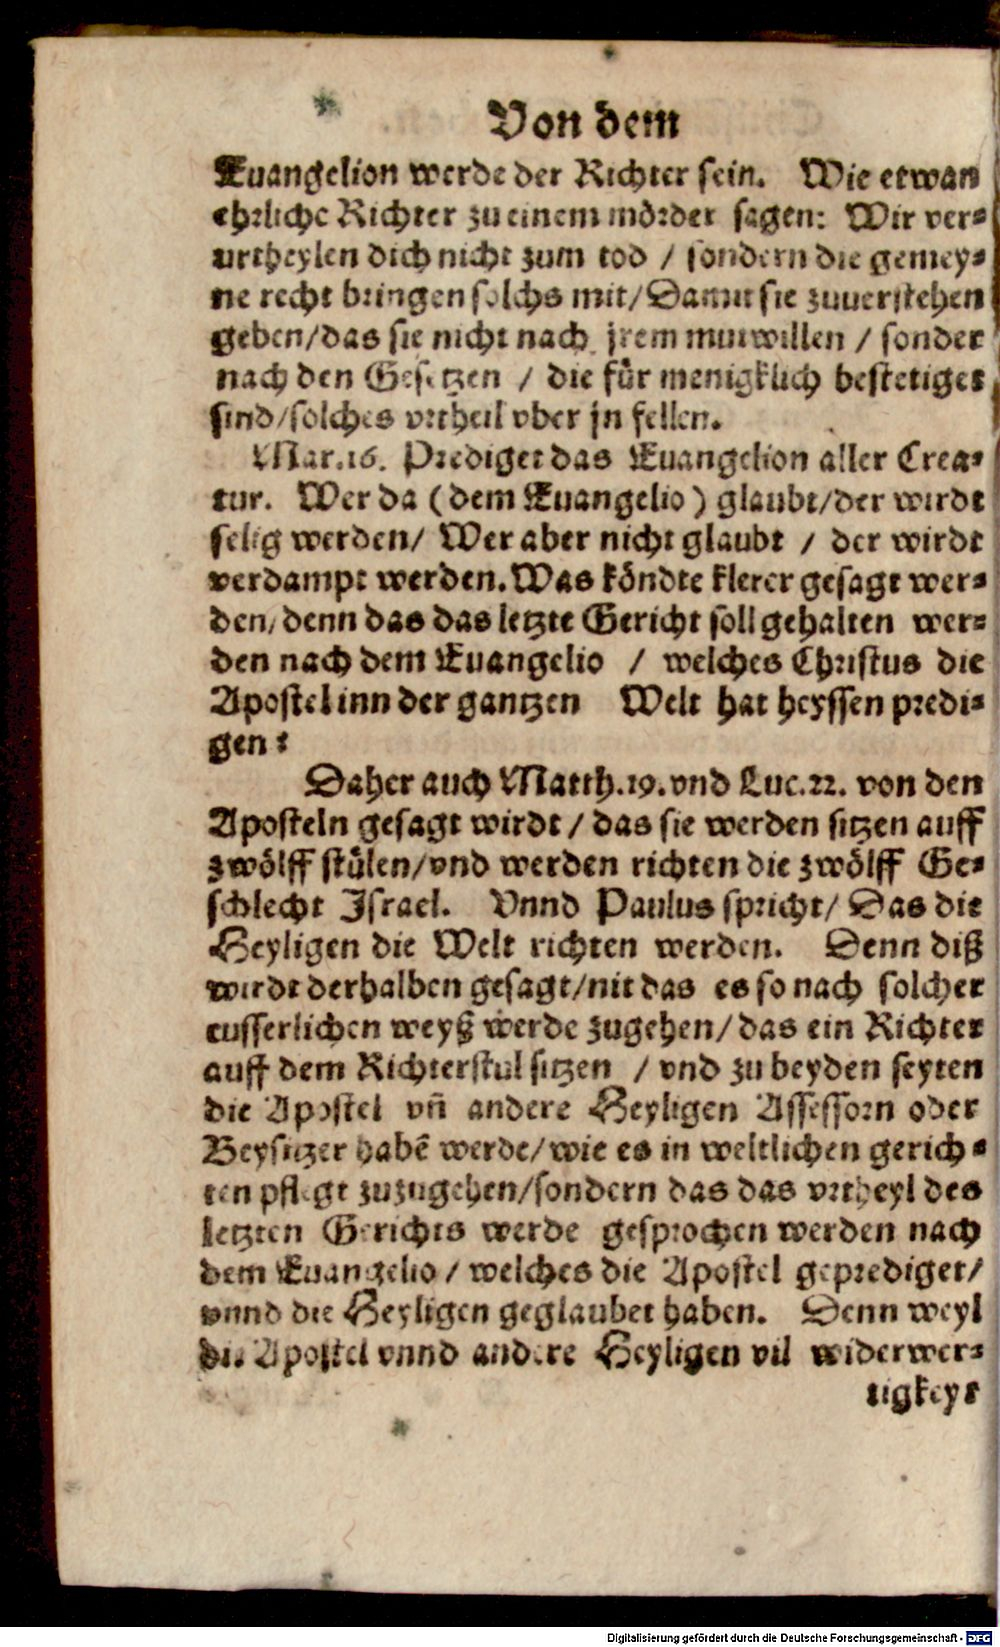 Von dem
Euangelion werde der Richter sein. Wie etwan
ehrliche Richter zu einem mörder sagen: Wir ver-
urtheylen dich nicht zum tod / sondern die gemey-
ne recht bringen solchs mit/Damit sie zuuerstehen
geben/das sie nicht nach jrem mutwillen / sonder
nach den Gesetzen / die für menigklich bestetiget
sind/solches vrtheil vber jn fellen.
Mar.16. Prediget das Euangelion aller Crea-
tur. Wer da (dem Euangelio) glaubt/der wirdt
selig werden/ Wer aber nicht glaubt / der wirdt
verdampt werden. Was köndte klerer gesagt wer-
den/denn das das letzte Gericht soll gehalten wer-
den nach dem Euangelio / welches Christus die
Apostel inn der gantzen Welt hat heyssen predi-
gen?
Daher auch Matth.19. vnd Luc.22. von den
Aposteln gesagt wirdt / das sie werden sitzen auff
zwölff stülen/vnd werden richten die zwölff Ge-
schlecht Israel. Vnnd Paulus spricht/ Das die
Heyligen die Welt richten werden. Denn diß
wirdt derhalben gesagt/nit das es so nach solcher
eusserlichen weyß werde zugehen/das ein Richter
auff dem Richterstul sitzen / vnd zu beyden seyten
die Apostel vñ andere Heyligen Assessorn oder
Beysitzer habẽ werde/wie es in weltlichen gerich-
ten pflegt zuzugehen/sondern das das vrtheyl des
letzten Gerichts werde gesprochen werden nach
dem Euangelio / welches die Apostel geprediget/
vnnd die Heyligen geglaubet haben. Denn weyl
die Apostel vnnd andere Heyligen vil widerwer-
tigkeyt
Digitalisierung gefördert durch die Deutsche Forschungsgemeinschaft - DFG